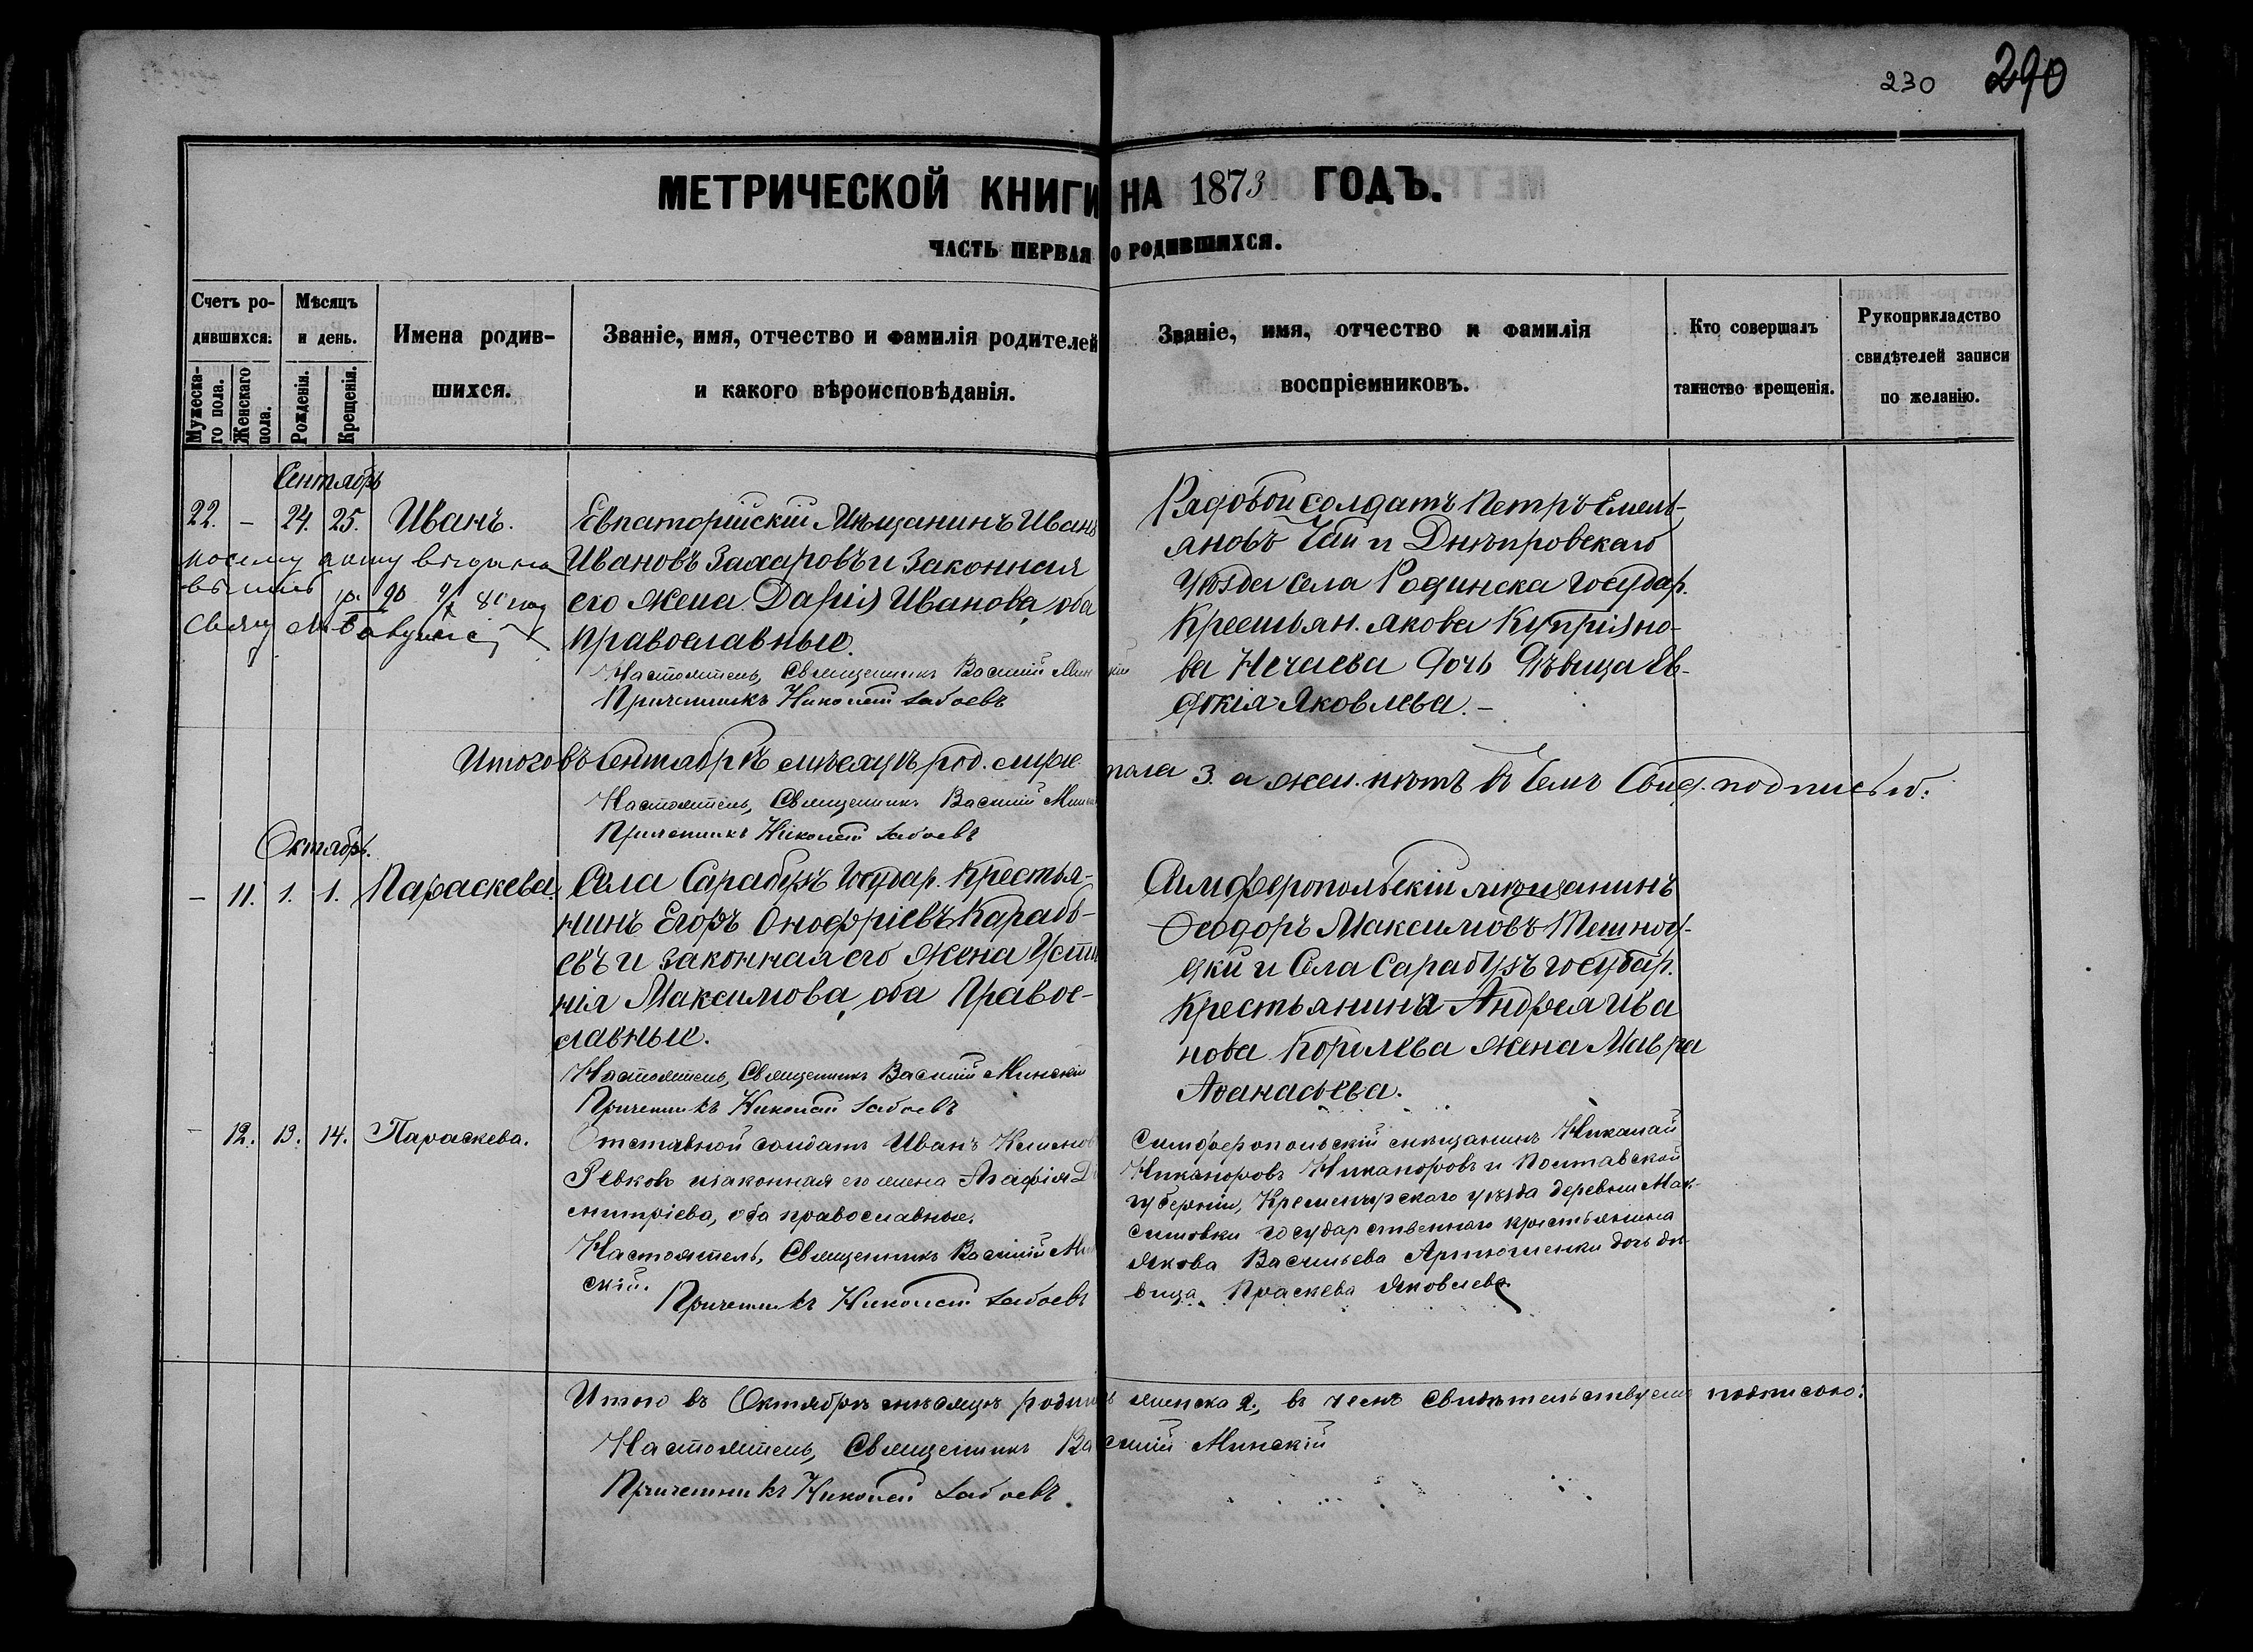 230 290
МЕТРИЧЕСКОЙ КНИГИ НА 1873 ГОДЪ.
ЧАСТЬ ПЕРВАЯ О РОДИВШИХСЯ.
Счетъ ро-
дившихся.
Мужеска-
го пола.
Женскаго
пола.
Мѣсяцъ
и день.
Рожденія.
Крещенія.
Имена родив-
шихся.
Званіе, имя, отчество и фамилія родителей
и какого вѣроисповѣданія.
Званіе, имя, отчество и фамилія
воспріемниковъ.
Кто совершалъ
таинство крещенія.
Рукоприкладство
свидѣтелей записи
по желанію.
Сентябрь
22. - 24. 25. Иванъ.
Евпаторійскій Мѣщанинъ Иванъ
Ивановъ Захаровъ и Законная
его жена Дарія Иванова, оба
православные.
Настоятель, Священникъ Василій Минскій
Причетникъ Николай
Рядовой солдатъ Петръ Емель-
яновъ и Днѣпровскаго
Уѣзда села Рогинска Государ.
Крестьян. Якова Купріяно-
ва Нечаева дочь дѣвица Ев-
докія Яковлева. -
Итого въ Сентябрѣ мѣсяцѣ род. муж. пола 3. а жен. нѣтъ въ чемъ Свид. подписью:
Настоятель, Священникъ Василій
Причетникъ Николай
Октябрь.
- 11. 1. 1. Параскева.
Села Сарабузъ Государ. Крестья-
нинъ Егоръ Онофріевъ
и законная его жена
Максимова, оба Правос-
лавные.
Настоятель, Священникъ Василій Минскій
Причетникъ Николай
Симферопольскій мѣщанинъ
Ѳеодоръ Максимовъ
и Села Сарабузъ государ.
Крестьянина Андрея Ива
нова жена Мавра
Аѳанасьева.
- 12. 13. 14. Параскева.
Отставной солдатъ Иванъ
Ревковъ и законная его жена Агафія Д
митріева, оба православные.
Настоятель, Священникъ Василій Мин
скій.
Причетникъ Николай
Симферопольскій мѣщанинъ Николай
Никаноровъ Никаноровъ и Полтавской
губерніи, Кременчугскаго уѣзда деревни Мак-
симовки государственнаго крестьянина
Якова Васильева Артюшенки дочь дѣ-
вица Праскева Яковлева
Итого въ Октябрѣ мѣсяцѣ родил женска 2., въ чемъ свидѣтельствуемъ подписью:
Настоятель, Священникъ Василій Минскій
Причетникъ Николай